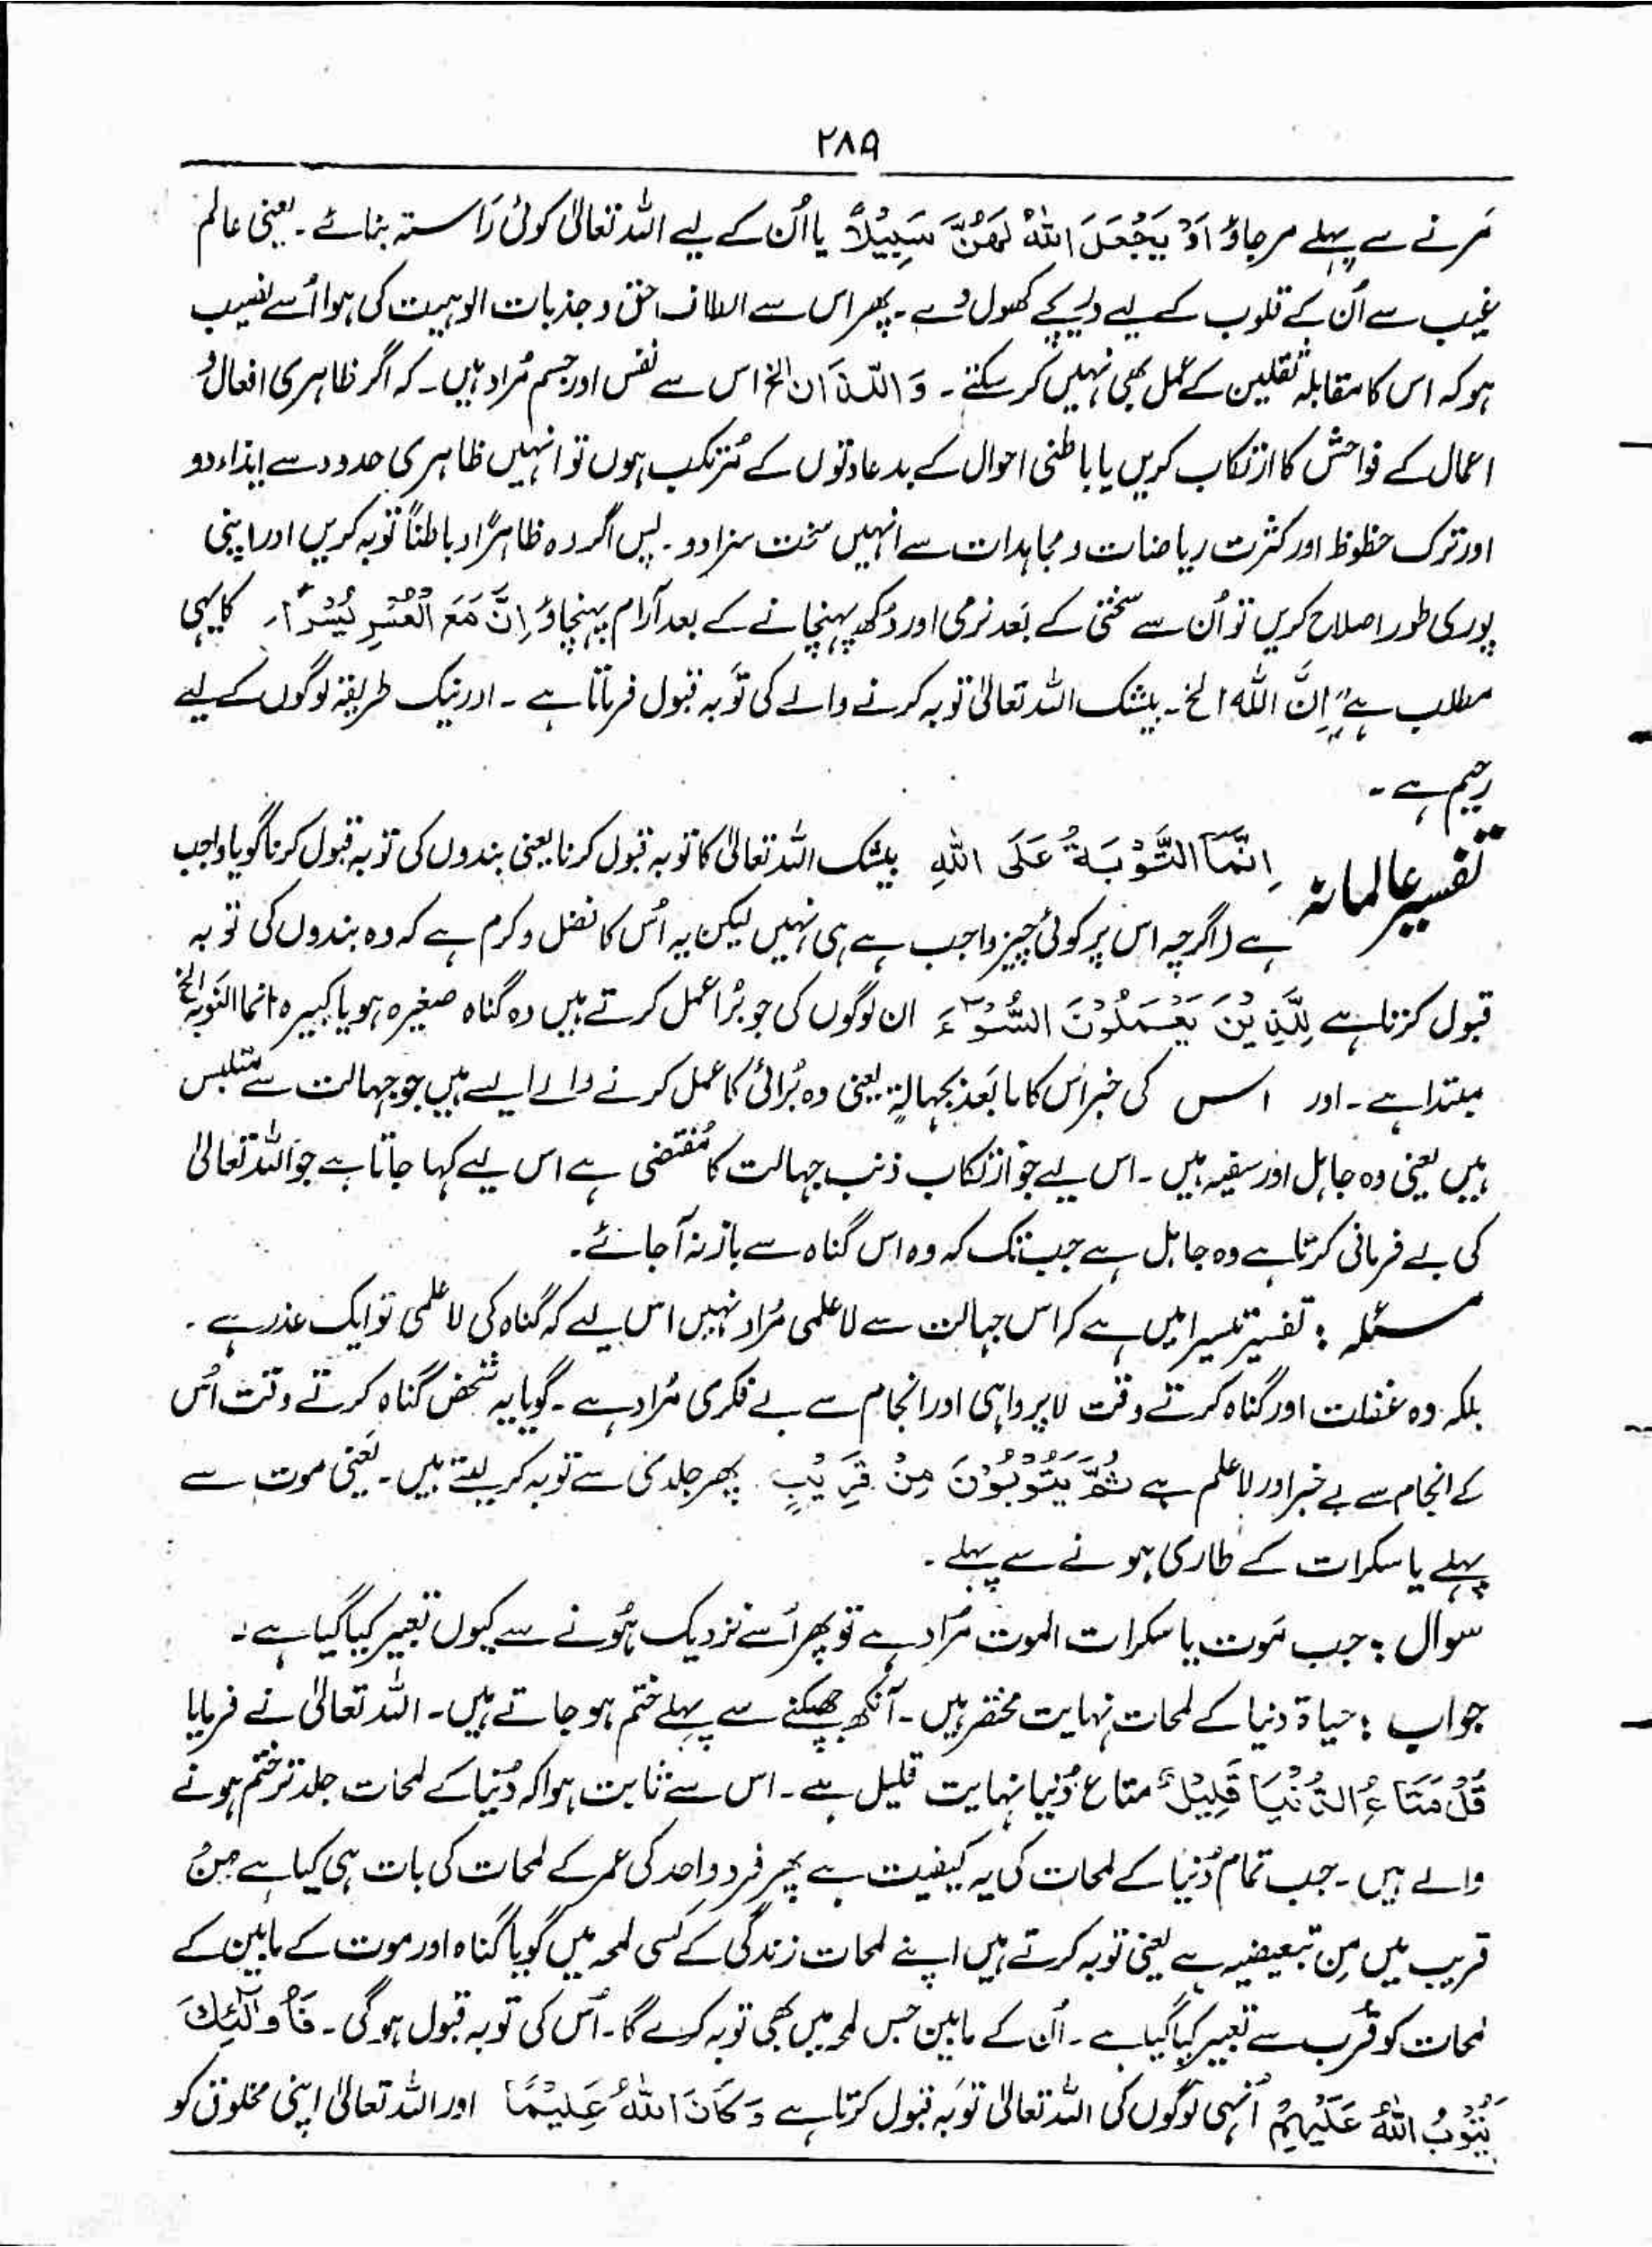 ۲۸۹
مَرنے سے پہلے مرجاؤ اَوْ یَجْعَلَ اللّٰهُ لَهُنَّ سَبِیْلًا یا اُن کے لیے اللہ تعالیٰ کوئی رَاستہ بنائے۔ یعنی عالم
غیب سے اُن کے قلوب کے لیے دریچے کھول دے۔ پھر اس سے الطاف حق و جذبات الوہیت کی ہوا اُسے نصیب
ہو کہ اس کا مقابلہ ثقلین کے عمل بھی نہیں کر سکتے۔ وَالَّذَانِ الخ اس سے نفس اور جسم مُراد ہیں۔ کہ اگر ظاہری افعال و
اعمال کے فواحش کا ارتکاب کریں یا باطنی احوال کے بد عادتوں کے مُرتکب ہوں تو انہیں ظاہری حدود سے ایذاء دو
اور ترک حظوظ اور کثرت ریاضات و مجاہدات سے انہیں سخت سزا دو۔ پس اگر وہ ظاہرًا و باطناً توبہ کریں اور اپنی
پوری طور اصلاح کریں تو اُن سے سختی کے بَعد نرمی اور دُکھ پہنچانے کے بعد آرام پہنچاؤ اِنَّ مَعَ الْعُسْرِ یُسْرًا۔ کا یہی
مطلب ہے" اِنَّ اللّٰہ الخ۔ بیشک اللہ تعالیٰ توبہ کرنے والے کی توَبہ قبول فرماتا ہے۔ اور نیک طریقہ لوگوں کے لیے
رحیم ہے۔
تفسیر عالمانہ اِنَّمَا التَّوْبَةُ عَلَی اللّٰهِ بیشک اللہ تعالیٰ کا توبہ قبول کرنا یعنی بندوں کی توبہ قبول کرنا گویا واجب
ہے (اگرچہ اس پر کوئی چیز واجب ہے ہی نہیں لیکن یہ اُس کا فضل و کرم ہے کہ وہ بندوں کی توبہ
قبول کرتا ہے لِلَّذِیْنَ یَعْمَلُوْنَ السُّوْٓءَ ان لوگوں کی جو بُرا عمل کرتے ہیں وہ گناہ صغیرہ ہو یا کبیرہ انما التوبہ الخ
مبتدا ہے۔ اور اس کی خبر اس کا ما بَعد بجہالۃٍ یعنی وہ بُرائی کا عمل کرنے والے ایسے ہیں جو جہالت سے متلبس
ہیں یعنی وہ جاہل اور سفیہ ہیں۔ اس لیے جو ارتکاب ذنب جہالت کا مُقتضی ہے اس لیے کہا جاتا ہے جو اللہ تعالیٰ
کی بے فرمانی کرتا ہے وہ جاہل ہے جب تک کہ وہ اس گناہ سے باز نہ آجائے۔
مسئلہ : تفسیر تیسیرا میں ہے کہ اس جہالت سے لا علمی مُراد نہیں اس لیے کہ گناہ کی لاعلمی تو ایک عذر ہے۔
بلکہ وہ غفلت اور گناہ کرتے وقت لاپرواہی اور انجام سے بے فکری مُراد ہے۔ گویا یہ شخص گناہ کرتے وقت اُس
کے انجام سے بے خبر اور لاعلم ہے ثُمَّ یَتُوْبُوْنَ مِنْ قَرِیْبٍ پھر جلدی سے توبہ کر لیتے ہیں۔ یَعنی موت سے
پہلے یا سکرات کے طاری ہونے سے پہلے۔
سوال : جب مَوت یا سکرات الموت مُراد ہے تو پھر اُسے نزدیک ہُونے سے کیوں تعبیر کیا گیا ہے۔
جواب : حیاۃ دنیا کے لمحات نہایت مختصر ہیں۔ آنکھ جھپکنے سے پہلے ختم ہو جاتے ہیں۔ اللہ تعالیٰ نے فرمایا
قُلْ مَتَاعُ الدُّنْیَا قَلِیْلٌ متاع دُنیا نہایت قلیل ہے۔ اس سے ثابت ہوا کہ دُنیا کے لمحات جلد تر ختم ہونے
والے ہیں۔ جب تمام دُنیا کے لمحات کی یہ کیفیت ہے پھر فرد واحد کی عمر کے لمحات کی بات ہی کیا ہے مِنْ
قریب میں مِن تبعیضیہ ہے یعنی توبہ کرتے ہیں اپنے لمحات زندگی کے کسی لمحہ میں گویا گناہ اور موت کے مابین کے
لمحات کو قُرب سے تعبیر کیا گیا ہے۔ اُن کے مابین جس لمحہ میں بھی توبہ کرے گا۔ اُس کی توبہ قبول ہوگی۔ فَاُولٰٓئِكَ
یَتُوْبُ اللّٰهُ عَلَیْهِمْ اُنہی لوگوں کی اللہ تعالیٰ توَبہ قبول کرتا ہے وَکَانَ اللّٰهُ عَلِیْمًا اور اللہ تعالیٰ اپنی مخلوق کو